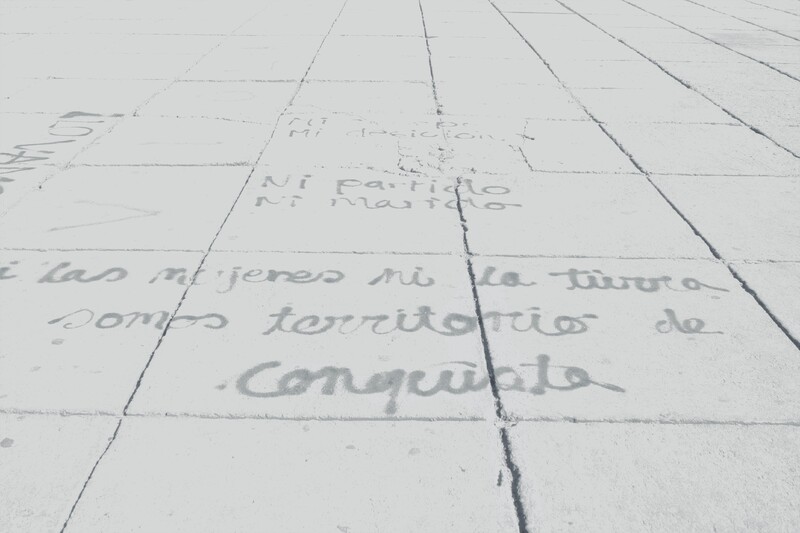 Mi
Mi decicion
Ni partido
Ni marido
i las mujeres ni la tierra
somos territorio de
Conquista